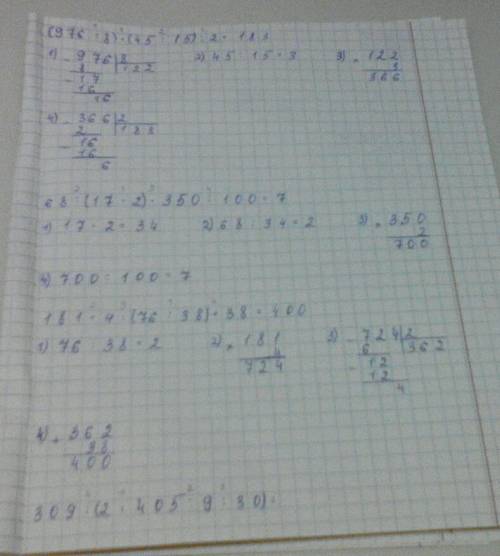 (976 : 8) · (45 : 15) : 2 = 183
1) - 976 | 8 2) 45 : 15 = 3 3) × 122
8 | 122 3
- 17 366
16
16
4) - 366 | 2
2 | 183
- 16
16
6
68 : (17 · 2) · 350 : 100 = 7
1) 17 · 2 = 34 2) 68 : 34 = 2 3) × 350
2
700
4) 700 : 100 = 7
181 · 4 : (76 : 38) + 38 = 400
1) 76 : 38 = 2 2) × 181 3) - 724 | 2
4 6 | 362
724 - 12
12
4
4) + 362
38
400
309 : (2 · 405 - 9 : 30) :